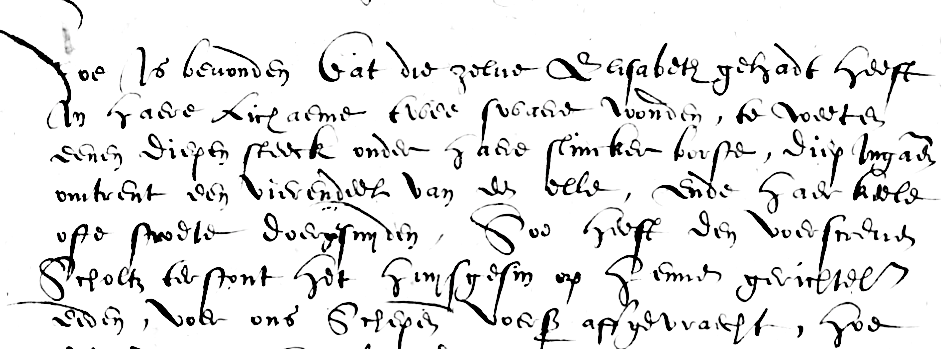 Soe Is beuonden dat die zelue Elisabeth gehadt heeft
In haere lichaeme twee swaere wonden, te weeten
eenen diepen steeck onder haere slincker borste, diep Ingaen
omtrent een vierendeel van een elle, ende haer keele
ofte stroete doergesneden, Soo heeft den voerscreuen
Scholtz terstont het huijsgesin op hennen gerichtel
eeden, voer ons Schepen voers affgevraecht, hoe